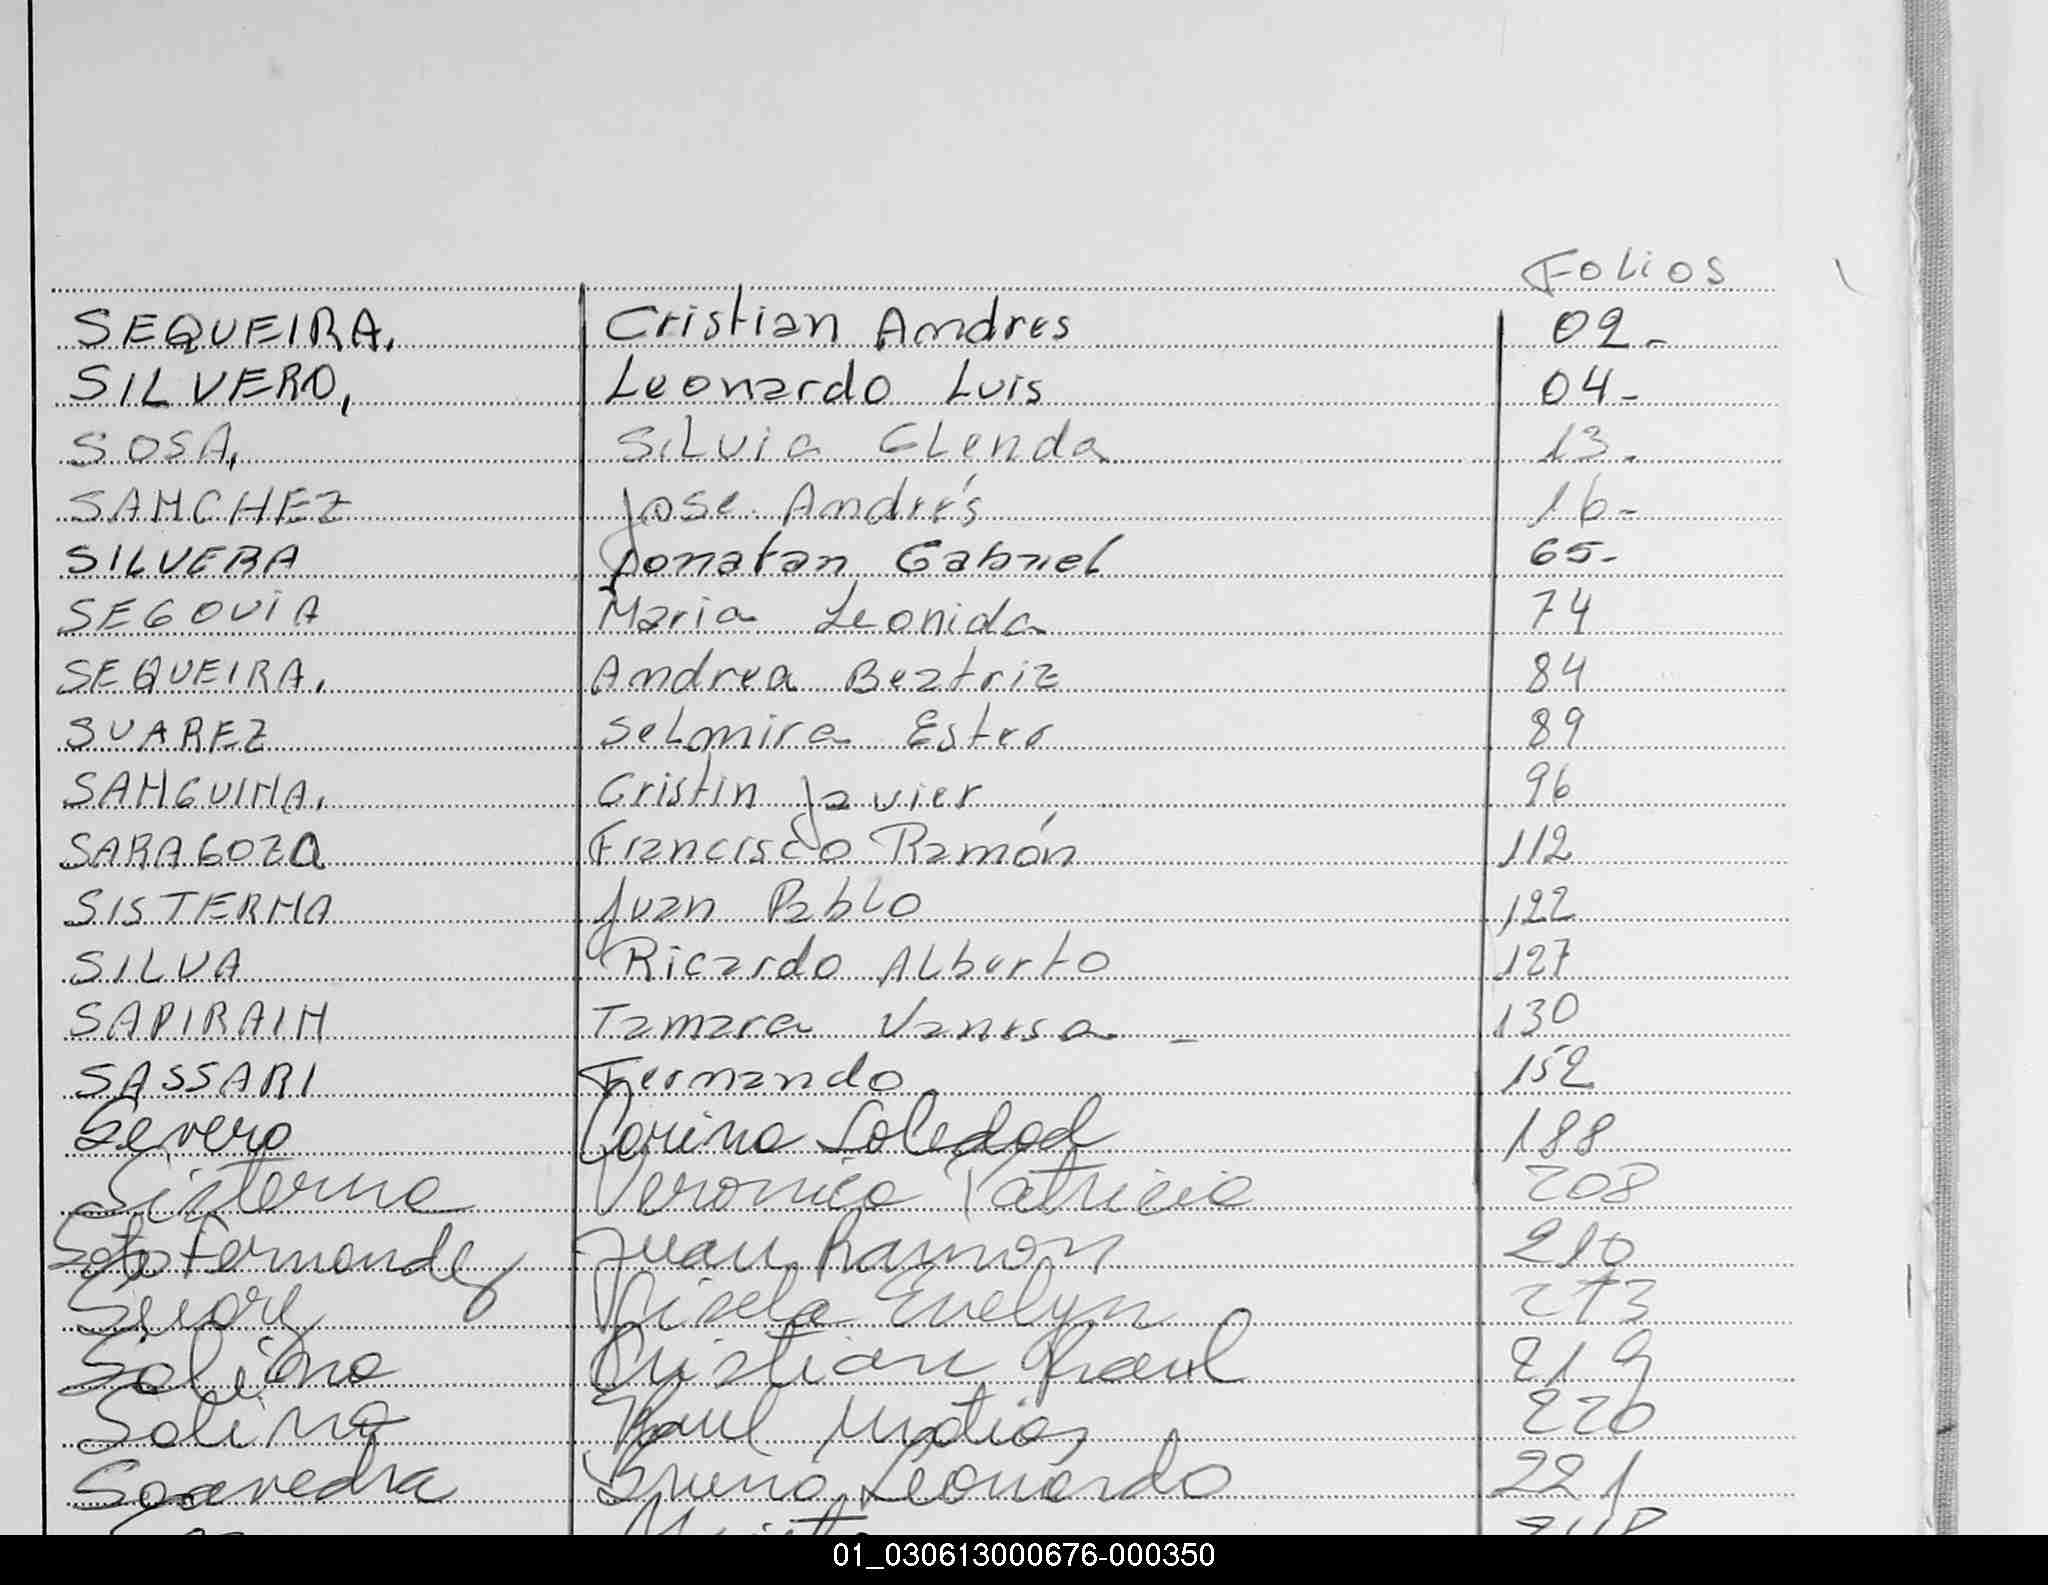 Folios
SEQUEIRA, Cristian Andres 02-
SILVERO, Leonardo Luis 04-
SOSA, Silvia Glenda 13-
SANCHEZ Jose Andrés 16-
SILVERA Jonatan Gabriel 65-
SEGOVIA Maria Leonida 74
SEQUEIRA, Andrea Beatriz 84
SUAREZ Selmira Ester 89
SANGUINA, Cristin Javier 96
SARAGOZA Francisco Ramón 112
SISTERNA Juan Pablo 122
SILVA Ricardo Alberto 127
SAPIRAIN Tamara Vanesa - 130
SASSARI Fernando 152
Severo Corina Soledad 188
Sisterna Veronica Patricia 208
Soto Fernandez Juan Ramon 210
Gisela Evelyn 213
Salina Cristian Raul 219
Salina Raul Matias 220
Saavedra Bruno Leonardo 221
01_030613000676-000350